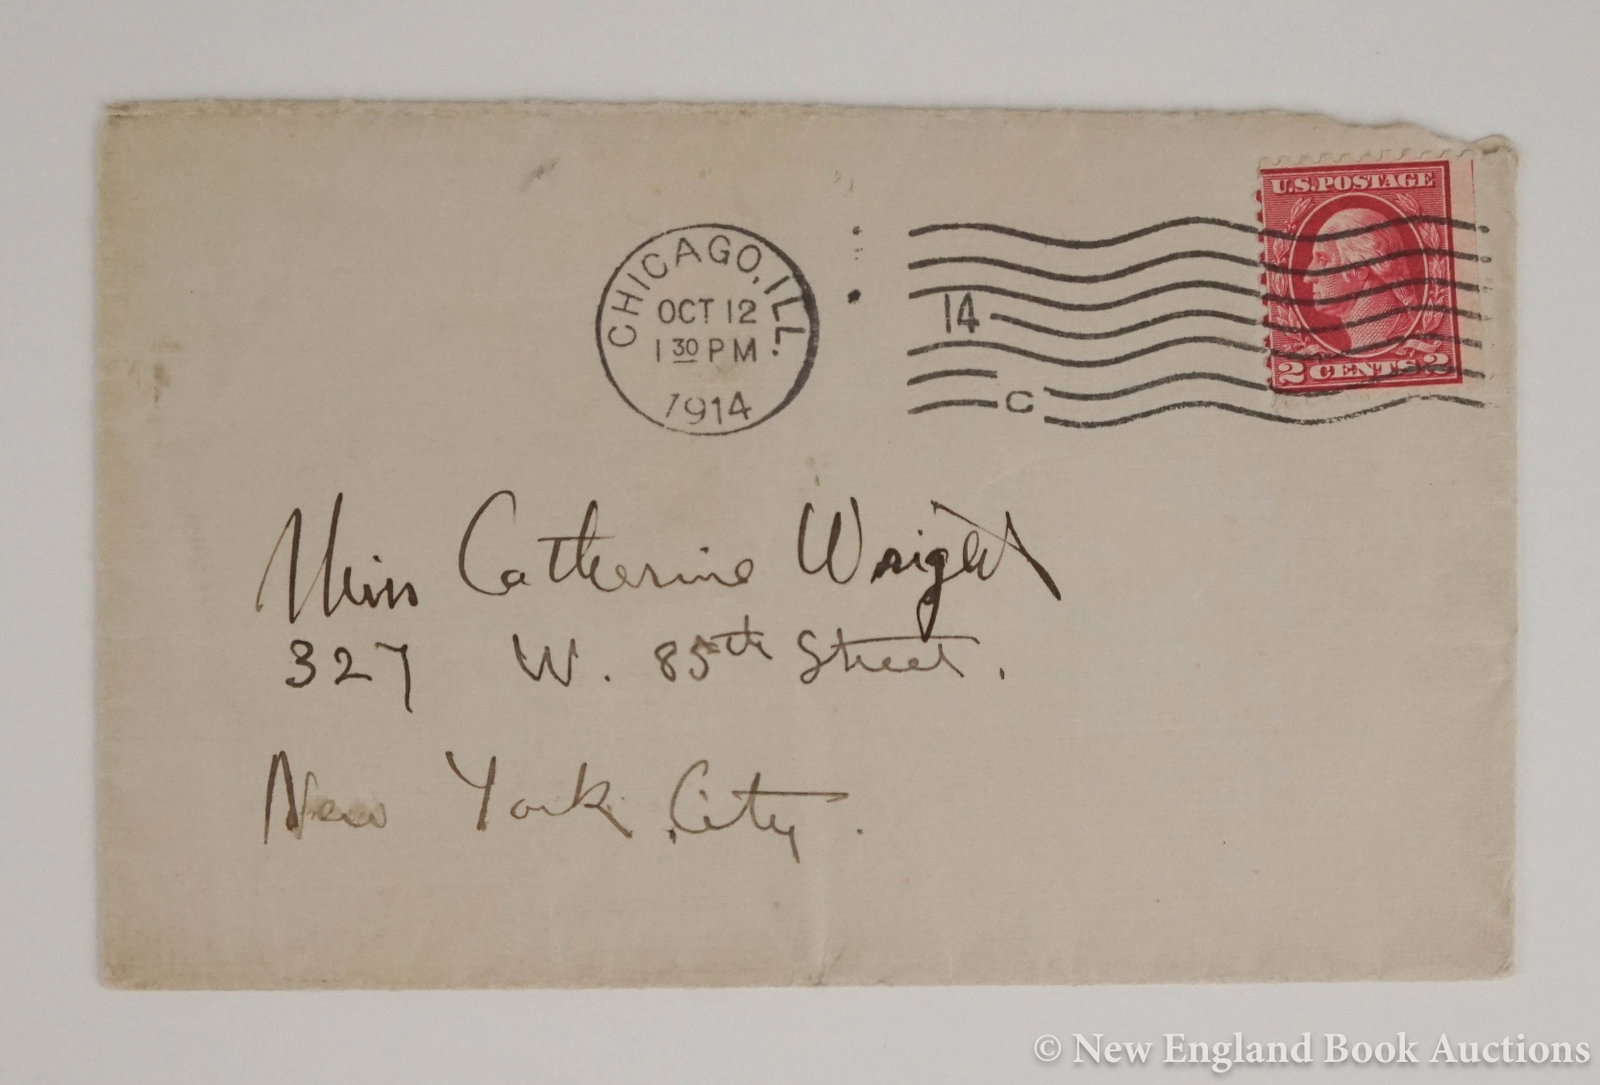 U.S. POSTAGE
2 CENTS 2
CHICAGO, ILL.
OCT 12
1 30 PM
1914
14
C
Miss Catherine Wright
327 W. 85th Street.
New York City.
© New England Book Auctions